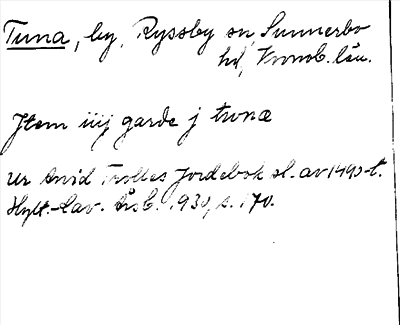 Tuna, by, Ryssby sn, Sunnerbo
hd, Kronob. län.
Jtem iiij garde j twnæ
Ur Arvid Trolles Jordebok sl. av 1490-t.
Hylt.-Cav. Årsb. 1930, s. 170.